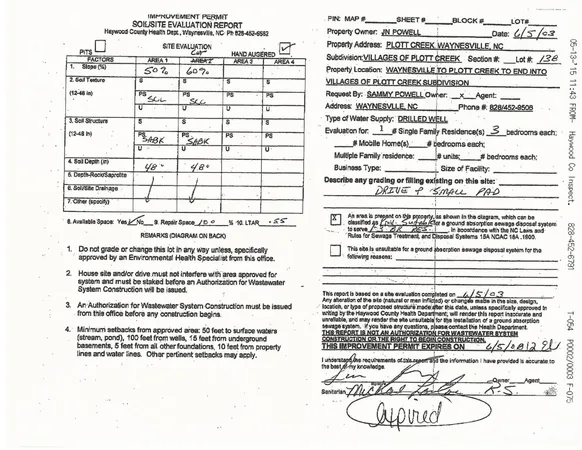 IMPROVEMENT PERMIT
SOIL/SITE EVALUATION REPORT
Haywood County Health Dept., Waynesville, NC Ph 828-452-6682
SITE EVALUATION
PITS HAND AUGERED
FACTORS AREA 1 AREA 2 AREA 3 AREA 4
1. Slope (%) 50% 60%
2. Soil Texture S S S S
(12-48 in) PS PS PS PS
SCL SCL
U U U U
3. Soil Structure S S S S
(12-48 in) PS PS PS PS
SABK SABK
U U U U
4. Soil Depth (in) 48" 48"
5. Depth-Rock/Saprolite
6. Soil/Site Drainage
7. Other (specify)
8. Available Space: Yes No 9. Repair Space 100 % 10. LTAR .55
REMARKS (DIAGRAM ON BACK)
1. Do not grade or change this lot in any way unless, specifically
approved by an Environmental Health Specialist from this office.
2. House site and/or drive must not interfere with area approved for
system and must be staked before an Authorization for Wastewater
System Construction will be issued.
3. An Authorization for Wastewater System Construction must be issued
from this office before any construction begins.
4. Minimum setbacks from approved area: 50 feet to surface waters
(stream, pond), 100 feet from wells, 15 feet from underground
basements, 5 feet from all other foundations, 10 feet from property
lines and water lines. Other pertinent setbacks may apply.
PIN: MAP # SHEET # BLOCK # LOT#
Property Owner: JN POWELL Date: 6/5/03
Property Address: PLOTT CREEK WAYNESVILLE, NC
Subdivision: VILLAGES OF PLOTT CREEK Section #: Lot #: 138
Property Location: WAYNESVILLE TO PLOTT CREEK TO END INTO
VILLAGES OF PLOTT CREEK SUBDIVISION
Request By: SAMMY POWELL Owner: x Agent:
Address: WAYNESVLLE, NC Phone #: 828/452-9508
Type of Water Supply: DRILLED WELL
Evaluation for: 1 # Single Family Residence(s) 3 bedrooms each;
# Mobile Home(s) # bedrooms each;
Multiple Family residence: # units; # bedrooms each;
Business Type: Size of Facility:
Describe any grading or filling existing on this site:
DRIVE & SMALL PAD
X An area is present on this property, as shown in the diagram, which can be
classified as Prov. Suitable for a ground absorption sewage disposal system
to serve 1-3 BR RES. in accordance with the NC Laws and
Rules for Sewage Treatment, and Disposal Systems 15A NCAC 18A .1900.
This site is unsuitable for a ground absorption sewage disposal system for the
following reasons:
This report is based on a site evaluation completed on 6/5/03
Any alteration of the site (natural or man inflicted) or changes made in the site, design,
location, or type of proposed structure made after this date, unless specifically approved in
writing by the Haywood County Health Department, will render this report inaccurate and
unreliable, and may render the site unsuitable for the installation of a ground absorption
sewage system. If you have any questions, please contact the Health Department.
THIS REPORT IS NOT AN AUTHORIZATION FOR WASTEWATER SYSTEM
CONSTRUCTION OR THE RIGHT TO BEGIN CONSTRUCTION.
THIS IMPROVEMENT PERMIT EXPIRES ON 6/5/08
I understand the requirements of this report and the information I have provided is accurate to
the best of my knowledge.
Owner Agent
Sanitarian R.S.
expired
05-13-'15 11:43 FROM- Haywood Co Inspect. 828-452-6791 T-054 P0002/0003 F-075